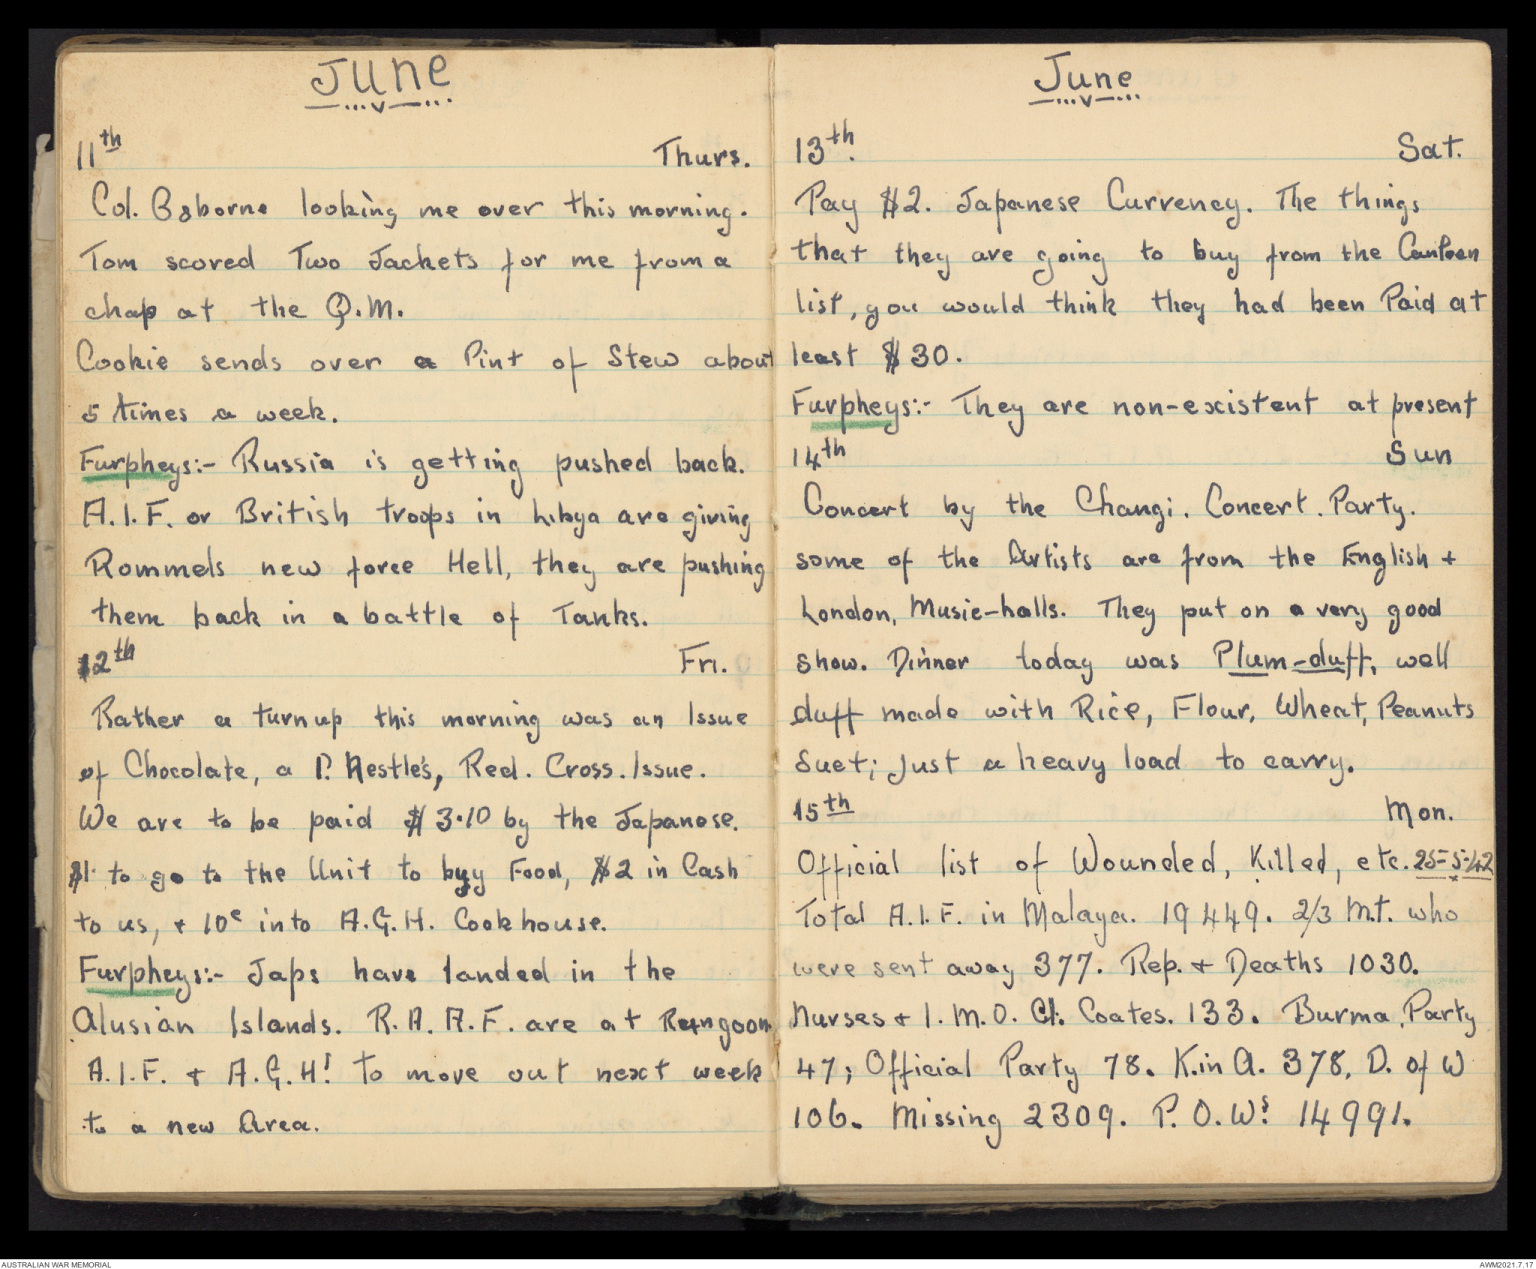 June
11th Thurs.
Col. Osborne looking me over this morning.
Tom scored Two Jackets for me from a
chap at the Q.M.
Cookie sends over a Pint of Stew about
5 times a week.
Furpheys:- Russia is getting pushed back.
A.I.F. or British troops in Libya are giving
Rommels new force Hell, they are pushing
them back in a battle of Tanks.
12th Fri.
Rather a turnup this morning was an Issue
of Chocolate, a P. Nestle's, Red. Cross. Issue.
We are to be paid $3.10 by the Japanese.
$1 to go to the Unit to buy Food, $2 in Cash
to us, + 10c into A.G.H. Cookhouse.
Furpheys:- Japs have landed in the
Alusian Islands. R.A.A.F. are at Rangoon
A.I.F. + A.G.H! to move out next week
to a new Area.
June
13th. Sat.
Pay $2. Japanese Currency. The things
that they are going to buy from the Canteen
list, you would think they had been Paid at
least $30.
Furpheys:- They are non-existent at present
14th Sun
Concert by the Changi. Concert. Party.
some of the Artists are from the English +
London, Music-halls. They put on a very good
show. Dinner today was Plum-duff, well
duff made with Rice, Flour, Wheat, Peanuts
Suet; just a heavy load to carry.
15th Mon.
Official list of Wounded, Killed, etc. 25-5-42
Total A.I.F. in Malaya. 19449. 2/3 M.T. who
were sent away 377. Rep. + Deaths 1030.
Nurses + I.M.O. Coates. 133. Burma, Party
47; Official Party 78. K.in A. 378, D. of W
106. Missing 2309. P.O.Ws. 14991.
AUSTRALIAN WAR MEMORIAL
AWM2021.7.17